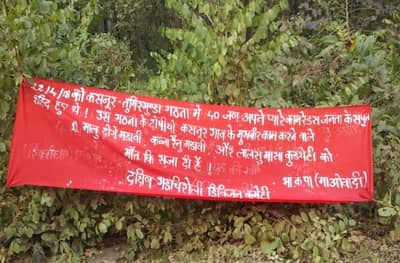 22/4/18 को कसनूर-तुमिरगुण्डा घटना में 40 जण अपने प्यारे कामरेडस जनता के सपूत
शहिद हुए थे! उस घटना के दोषीयो कसनूर गाव के मुखबीर काम करने वाले
मालु दोगे मडावी, कन्ना रैनु मडावी और लालसु मासा कुडयेटी को
मौत कि सजा दी है!
दक्षिण गडचिरोली डिविजन कमेटी भा.क.पा (माओवादी)